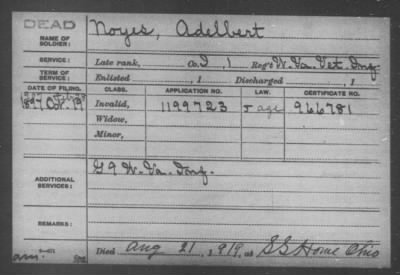 DEAD
NAME OF SOLDIER: Noyes, Adelbert
SERVICE: Late rank, Co. I, 1 Reg't W. Va. Vet. Inf.
TERM OF SERVICE: Enlisted , 1 Discharged , 1
DATE OF FILING. CLASS. APPLICATION NO. LAW. CERTIFICATE NO.
1897 Oct. 19 Invalid, 1199723 age 966781
Widow,
Minor,
ADDITIONAL SERVICES: G 9 W. Va. Inf.
REMARKS:
Died Aug 21, 1919, at S S Home Ohio